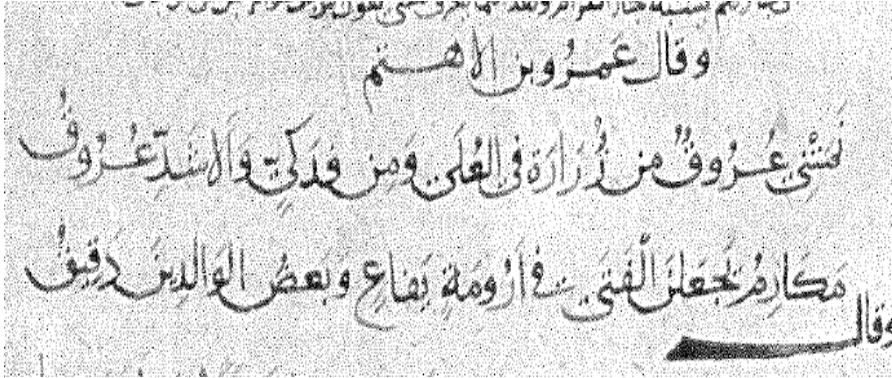 وقال عمرو بن الاهتم
نَمَتْنِي عُرُوقٌ من زُرَارَة فى العُلَى وَمِن فَدَكِىٍّ وَالاشَدِّ عُرُوقُ
مَكَارِمُ تَجعَلنَ الْفَتَى فى اَرُومَةٍ يَفَاعٍ وَبَعضُ الوَالدِينَ دَقِيقُ
وقال